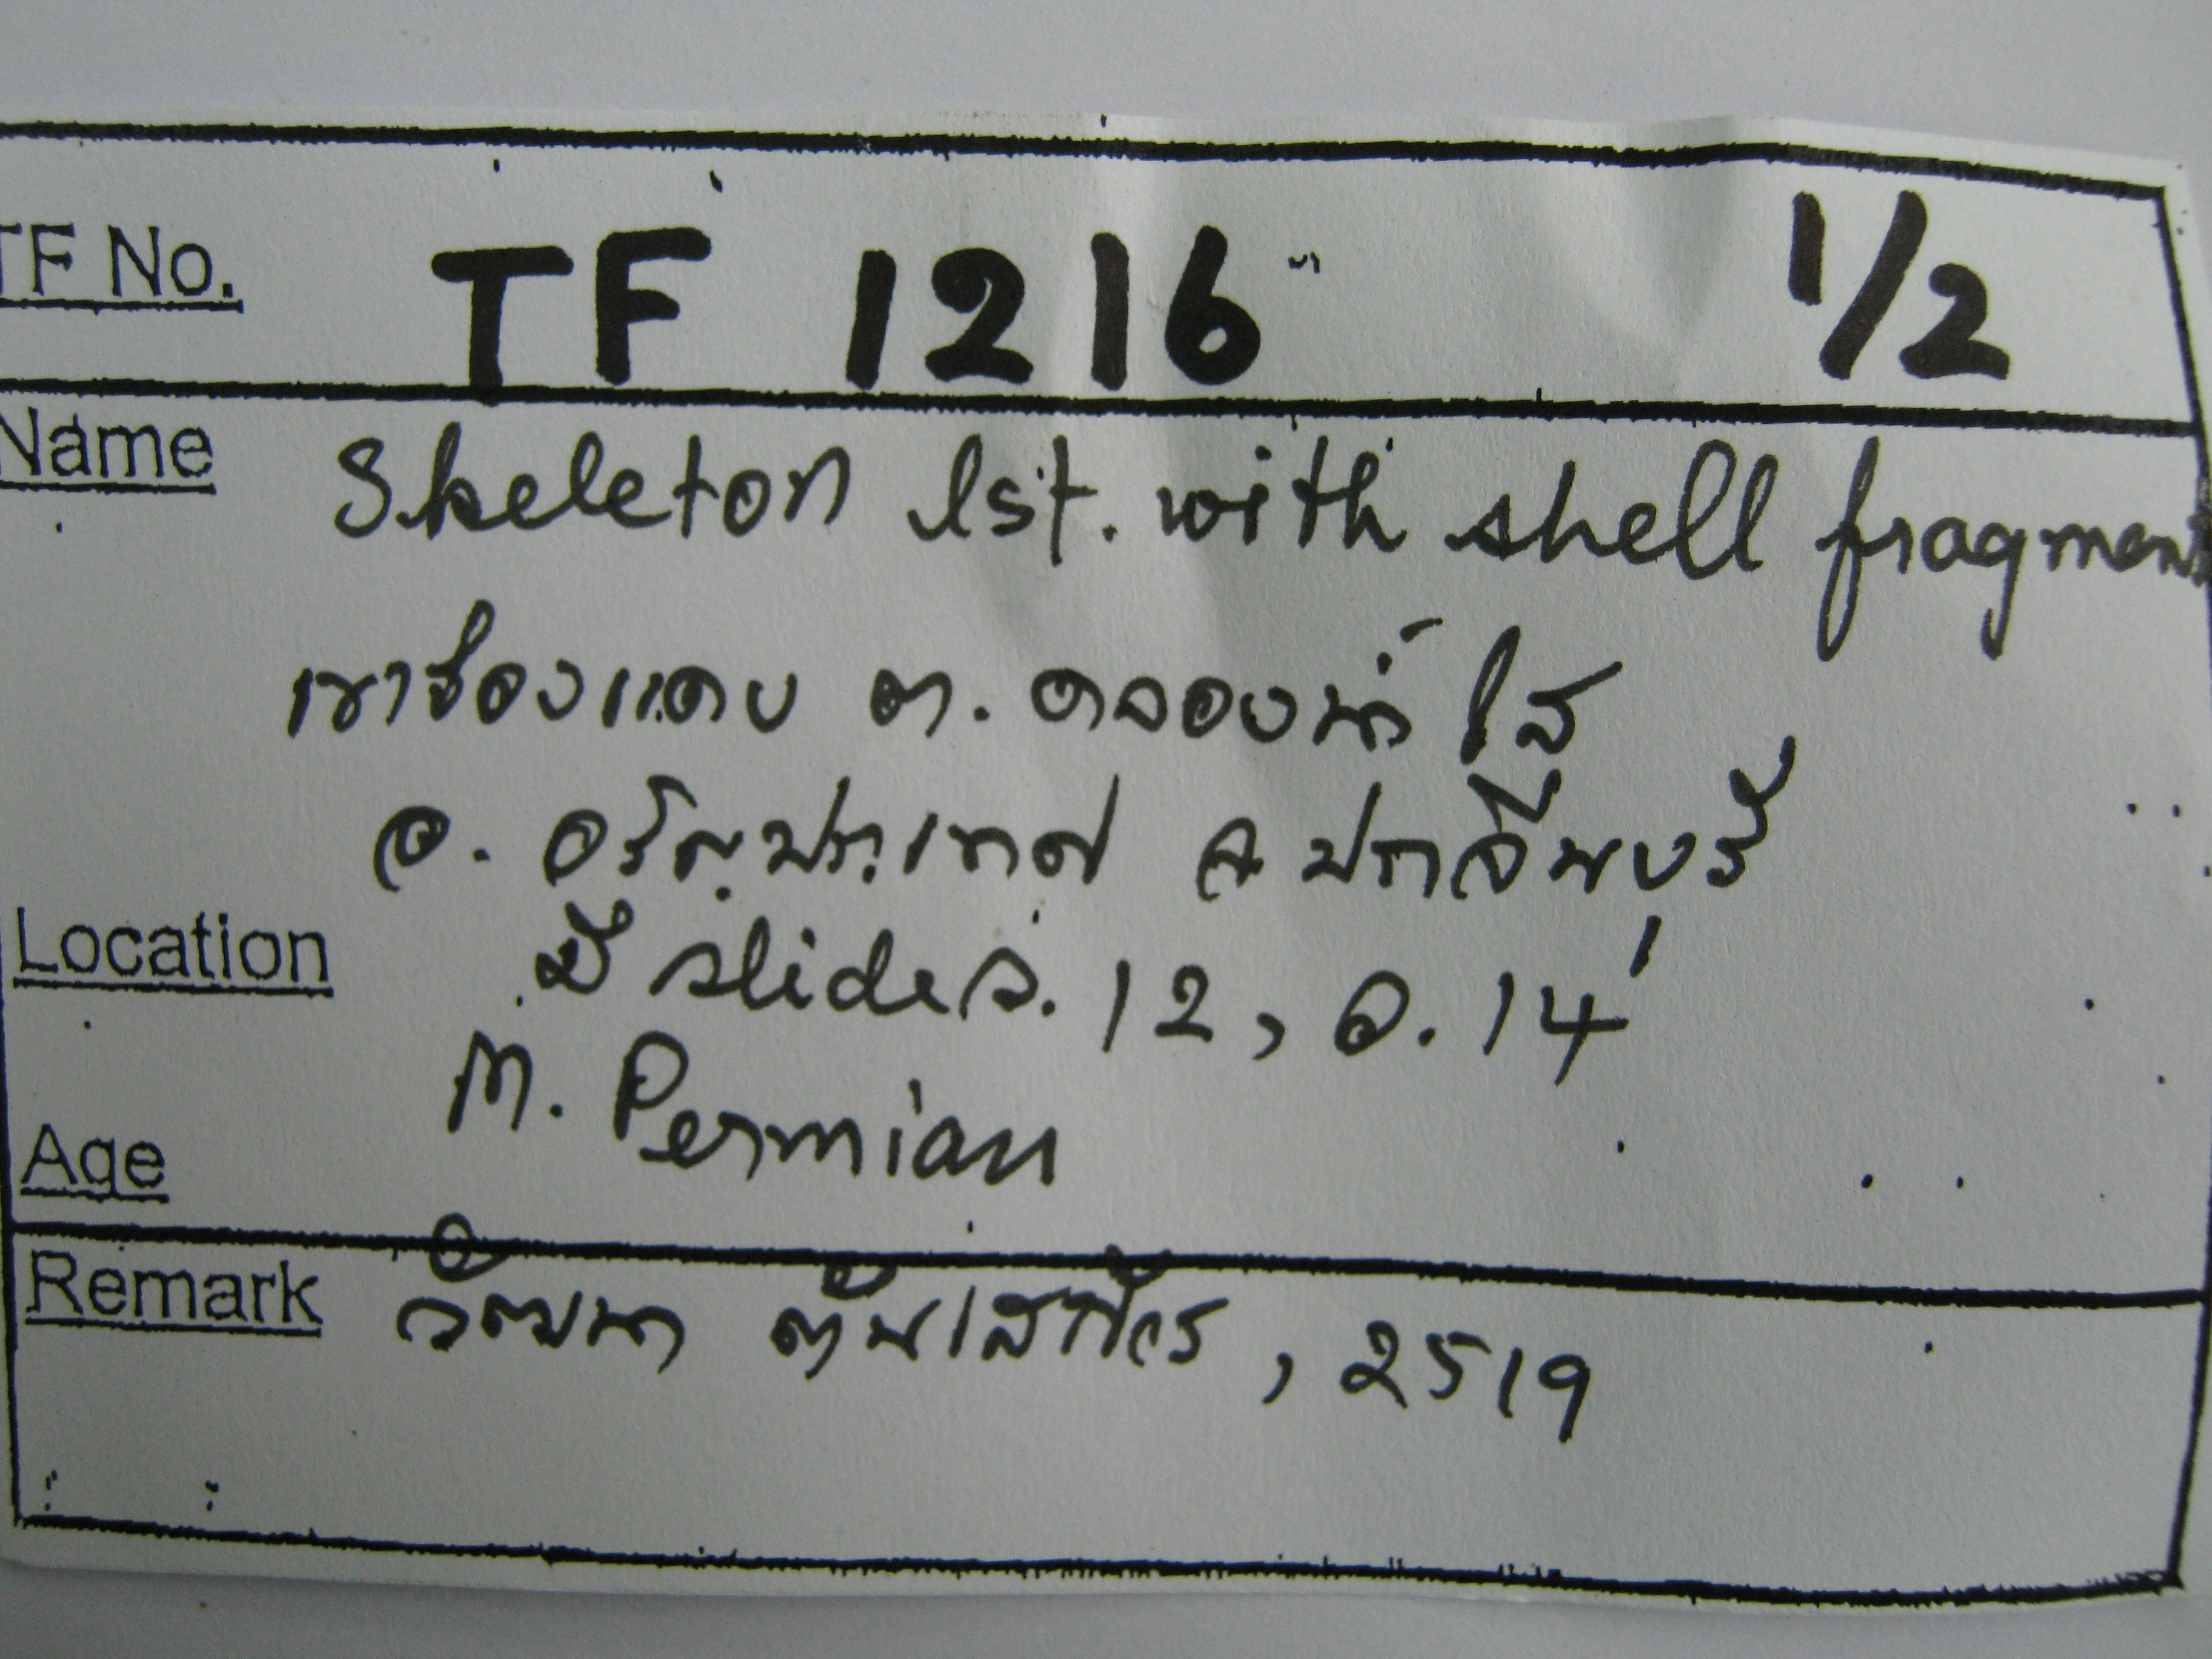 TF No. TF 1216 1/2
Name Skeleton lst. with shell fragment
เขาช่องแคบ ต. คลองน้ำใส
อ. อรัญประเทศ จ ปราจีนบุรี
Location มี slides. 12, อ. 14
Age M. Permian
Remark วัฒนา ตันเสถียร, 2519